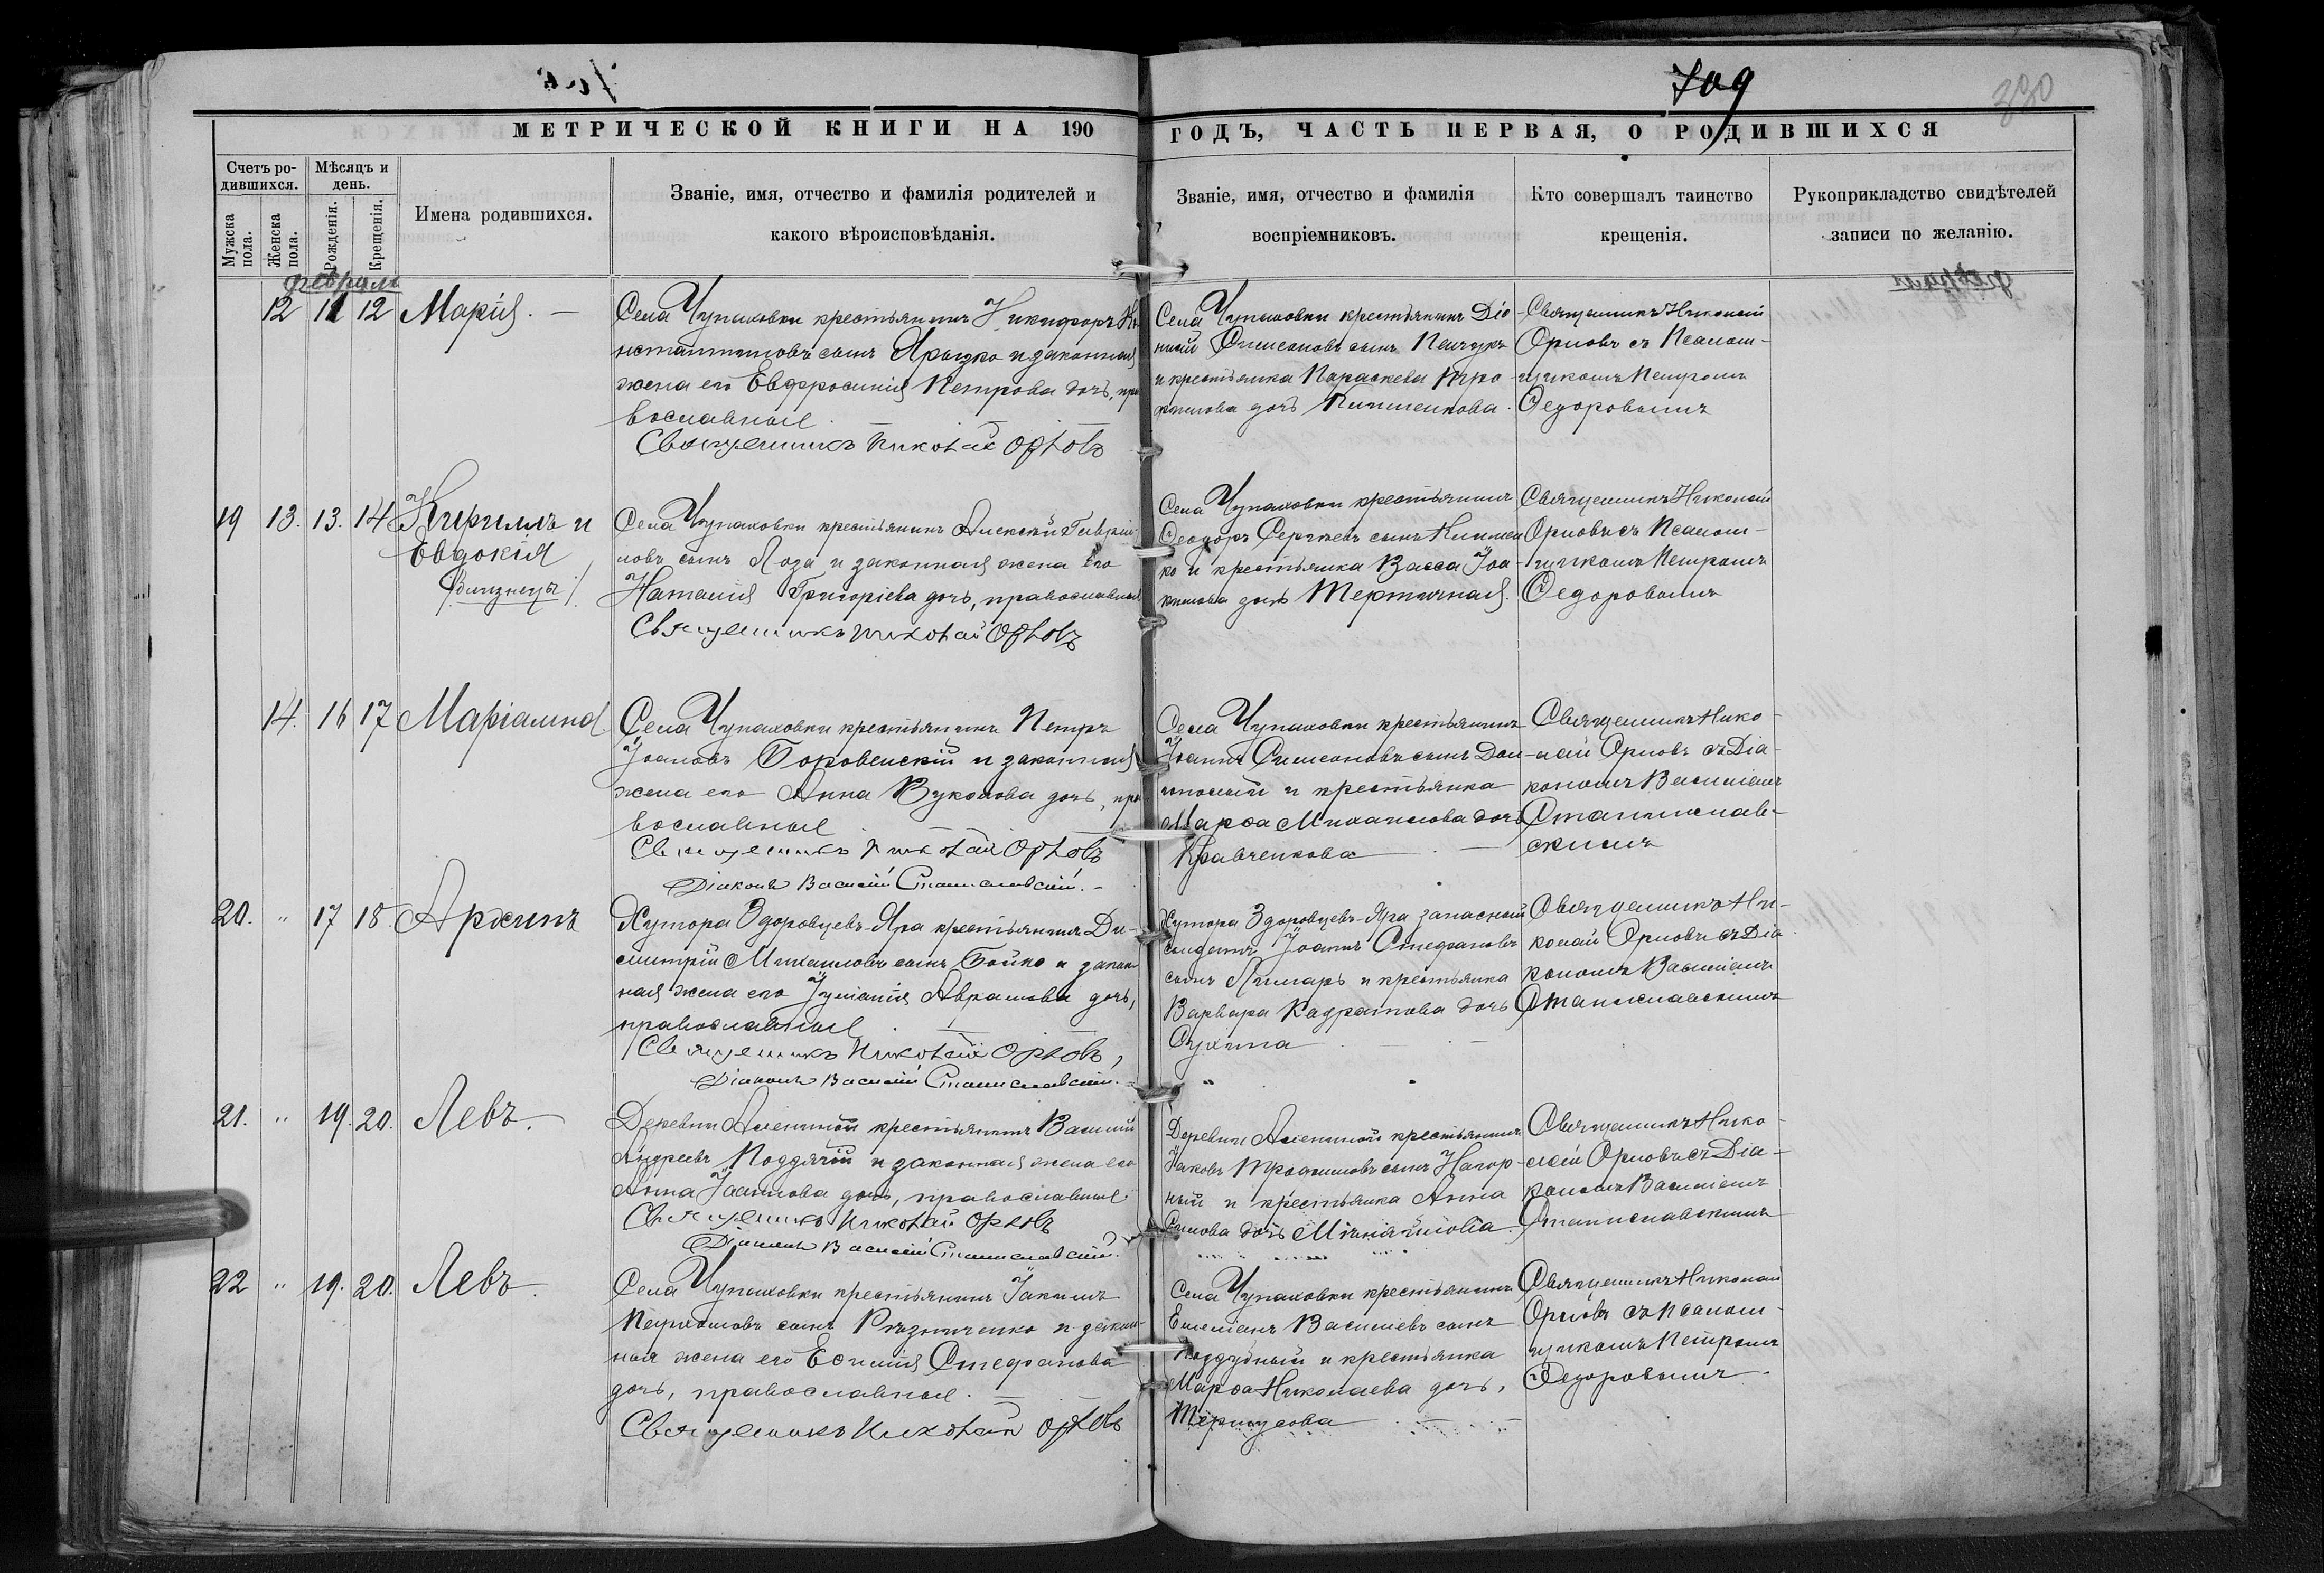 709
330
МЕТРИЧЕСКОЙ КНИГИ НА 190
ГОДЪ, ЧАСТЬ ПЕРВАЯ, О РОДИВШИХСЯ
Счетъ ро-
дившихся.
Мужска
пола.
Женска
пола.
Мѣсяцъ и
день.
Рожденія.
Крещенія.
Имена родившихся.
Званіе, имя, отчество и фамилія родителей и
какого вѣроисповѣданія.
Званіе, имя, отчество и фамилія
воспріемниковъ.
Кто совершалъ таинство
крещенія.
Рукоприкладство свидѣтелей
записи по желанію.
февраль
12 11 12 Марія. —
Села Чупаховки крестьянинъ Никифоръ Ко
нстантиновъ сынъ Ярышко и законная
жена его Евфросинія Петрова дочь, пра
вославные
Священникъ Николай Орловъ
Села Чупаховки крестьянинъ Діо
нисій Симеоновъ сынъ
и крестьянка Параскева Тро
химова дочь
Священникъ Николай
Орловъ съ Псалом-
щикомъ Петромъ
Федоровымъ
19 13. 13. 14 Кириллъ и
Евдокія
(близнецы)
Села Чупаховки крестьянинъ Алексѣй Гаврiи
ловъ сынъ Лоза и законная жена его
Наталія Григоріева дочь, православные
Священникъ Николай Орловъ
Села Чупаховки крестьянинъ
Феодоръ Сергѣевъ сынъ
ко и крестьянка Васса Іоа
кимова дочь Тертичная.
Священникъ Николай
Орловъ съ Псалом-
щикомъ Петромъ
Федоровымъ
14. 16 17 Маріамна
Села Чупаховки крестьянинъ Петръ
Іоановъ Боровенскій и законная
жена его Анна Вуколова дочь, пра
вославные
Священникъ Николай Орловъ
Діаконъ Василій Станиславскій. —
Села Чупаховки крестьянинъ
Іоаннъ Симеоновъ сынъ
и крестьянка
Марѳа Михаилова дочь
Кравченкова —
Священникъ Нико-
лай Орловъ съ Діа-
кономъ Василіемъ
Станиславс-
скимъ
20. " 17 18. Архипъ
Хутора Здоровцевъ-Яра крестьянинъ Ди-
митрій Михаиловъ сынъ Бойко и закон
ная жена его Іуліанія Аврамова дочь,
православные
Священникъ Николай Орловъ,
Діаконъ Василій Станиславскій.
Хутора Здоровцевъ-Яра запасный
солдатъ Іоаннъ Стефановъ
сынъ Лимарь и крестьянка
Варвара Кодратова дочь
Сухина
Священникъ Ни-
колай Орловъ съ Діа
кономъ Василіемъ
Станиславскимъ
21. " 19. 20. Левъ.
Деревни Алениной крестьянинъ Василій
Андреевъ Поддячій и законная жена его
Анна дочь, православные
Священникъ Николай Орловъ
Діаконъ Василій Станиславскій.
Деревни Алениной крестьянинъ
Іаковъ Трофимовъ сынъ Нагор-
ный и крестьянка Анна
дочь
Священникъ Нико-
лай Орловъ съ Діа-
кономъ Василіемъ
Станиславскимъ
22 " 19. 20. Левъ.
Села Чупаховки крестьянинъ Іакимъ
сынъ Рѣзниченко и закон-
ная жена его Евфимія Стефанова
дочь, православные. —
Священникъ Николай Орловъ
Села Чупаховки крестьянинъ
Емеліанъ Василіевъ сынъ
Поддубный и крестьянка
Марѳа Николаева дочь,
Священникъ Николай
Орловъ съ Псалом-
щикомъ Петромъ
Федоровымъ.